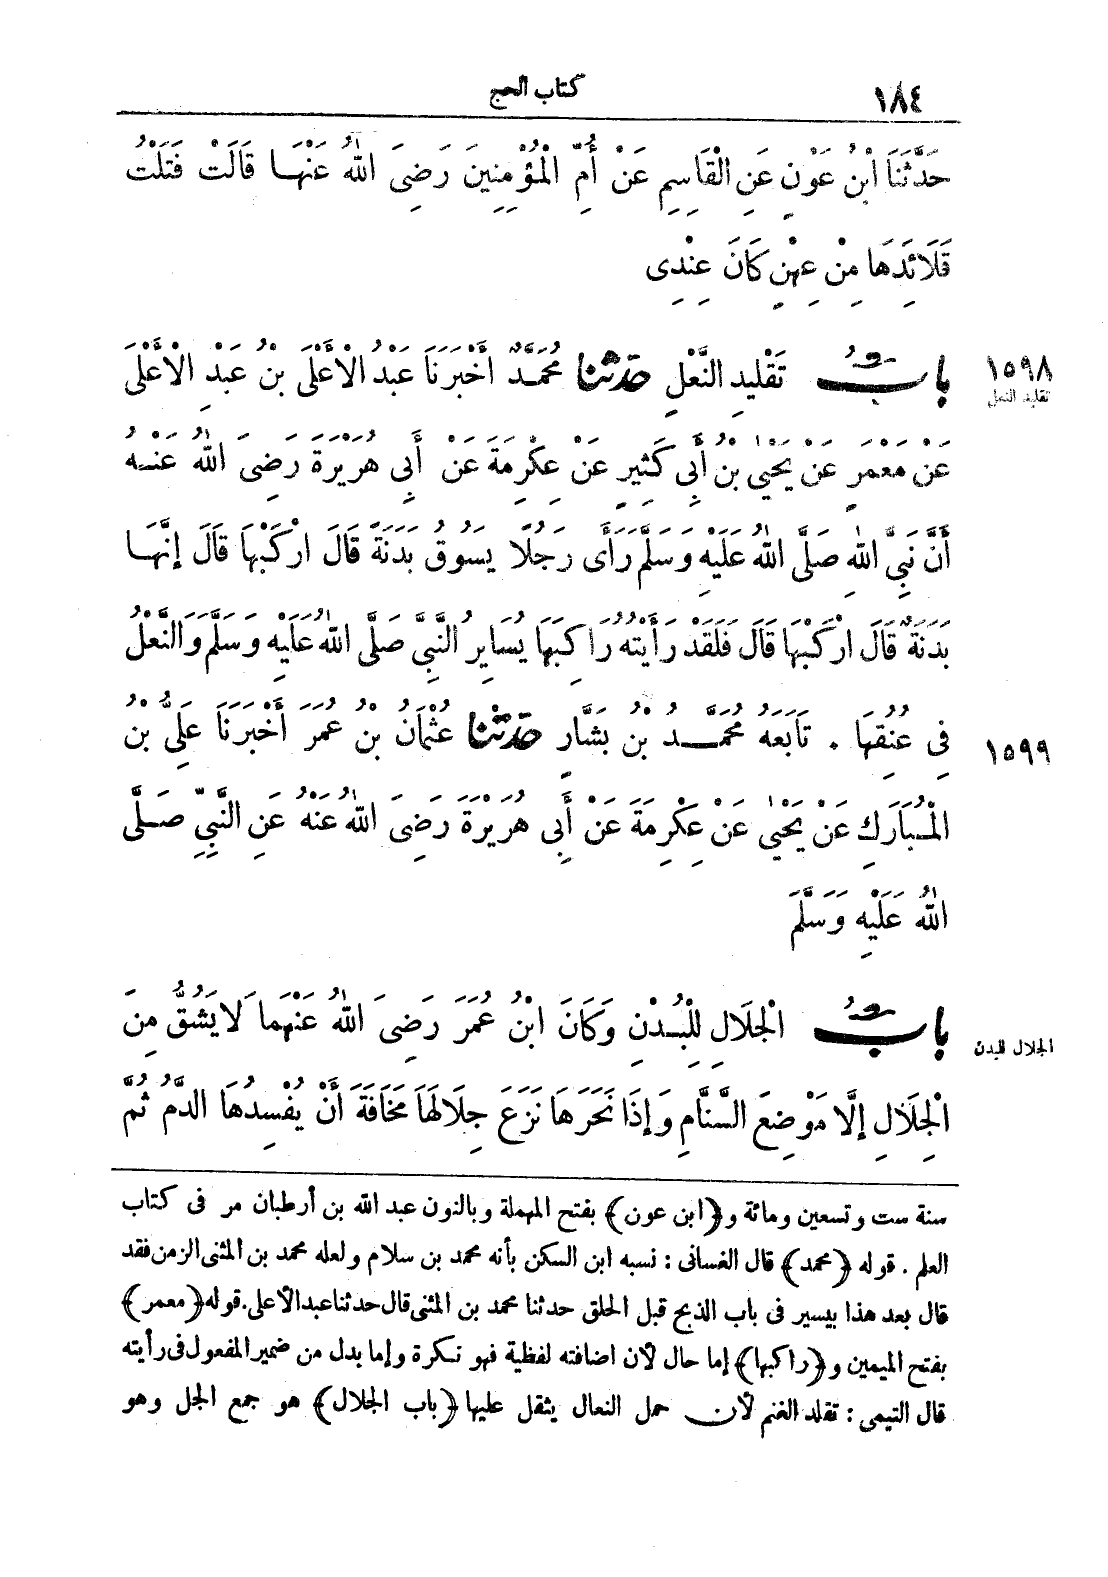 ١٨٤
كتاب الحج
حَدَّثَنَا ابْنُ عَوْنٍ عَنِ الْقَاسِمِ عَنْ أُمِّ الْمُؤْمِنِينَ رَضِىَ اللّٰهُ عَنْهَا قَالَتْ فَتَلْتُ
قَلَائِدَهَا مِنْ عِهْنٍ كَانَ عِنْدِى
١٥٩٨
تقليد النعل
بَابُ تَقْلِيدِ النَّعْلِ حدثنا مُحَمَّدٌ أَخْبَرَنَا عَبْدُ الْأَعْلَى بْنُ عَبْدِ الْأَعْلَى
عَنْ مَعْمَرٍ عَنْ يَحْيٰى بْنِ أَبِى كَثِيرٍ عَنْ عِكْرِمَةَ عَنْ أَبِى هُرَيْرَةَ رَضِىَ اللّٰهُ عَنْهُ
أَنَّ نَبِىَّ اللّٰهِ صَلَّى اللّٰهُ عَلَيْهِ وَسَلَّمَ رَأَى رَجُلًا يَسُوقُ بَدَنَةً قَالَ ارْكَبْهَا قَالَ إِنَّهَا
بَدَنَةٌ قَالَ ارْكَبْهَا قَالَ فَلَقَدْ رَأَيْتُهُ رَاكِبَهَا يُسَايِرُ النَّبِىَّ صَلَّى اللّٰهُ عَلَيْهِ وَسَلَّمَ وَالنَّعْلُ
١٥٩٩
فِى عُنُقِهَا . تَابَعَهُ مُحَمَّدُ بْنُ بَشَّارٍ حَدَّثَنَا عُثْمَانُ بْنُ عُمَرَ أَخْبَرَنَا عَلِىُّ بْنُ
الْمُبَارَكِ عَنْ يَحْيٰى عَنْ عِكْرِمَةَ عَنْ أَبِى هُرَيْرَةَ رَضِىَ اللّٰهُ عَنْهُ عَنِ النَّبِىِّ صَلَّى
اللّٰهُ عَلَيْهِ وَسَلَّمَ
الجلال للبدن
بَابُ الْجِلَالِ لِلْبُدْنِ وَكَانَ ابْنُ عُمَرَ رَضِىَ اللّٰهُ عَنْهُمَا لَا يَشُقُّ مِنَ
الْجِلَالِ إِلَّا مَوْضِعَ السَّنَامِ وَإِذَا نَحَرَهَا نَزَعَ جِلَالَهَا مَخَافَةَ أَنْ يُفْسِدَهَا الدَّمُ ثُمَّ
سنة ست وتسعين ومائة و﴿ابن عون﴾ بفتح المهملة وبالنون عبد الله بن أرطبان مر فى كتاب
العلم . قوله ﴿محمد﴾ قال الغسانى : نسبه ابن السكن بأنه محمد بن سلام ولعله محمد بن المثنى الزمن فقد
قال بعد هذا بيسير فى باب الذبح قبل الحلق حدثنا محمد بن المثنى قال حدثنا عبد الأعلى. قوله ﴿معمر﴾
بفتح الميمين و﴿راكبها﴾ إما حال لأن اضافته لفظية فهو نكرة وإما بدل من ضمير المفعول فى رأيته
قال التيمى : تقلد الغنم لأن حمل النعال يثقل عليها ﴿باب الجلال﴾ هو جمع الجل وهو